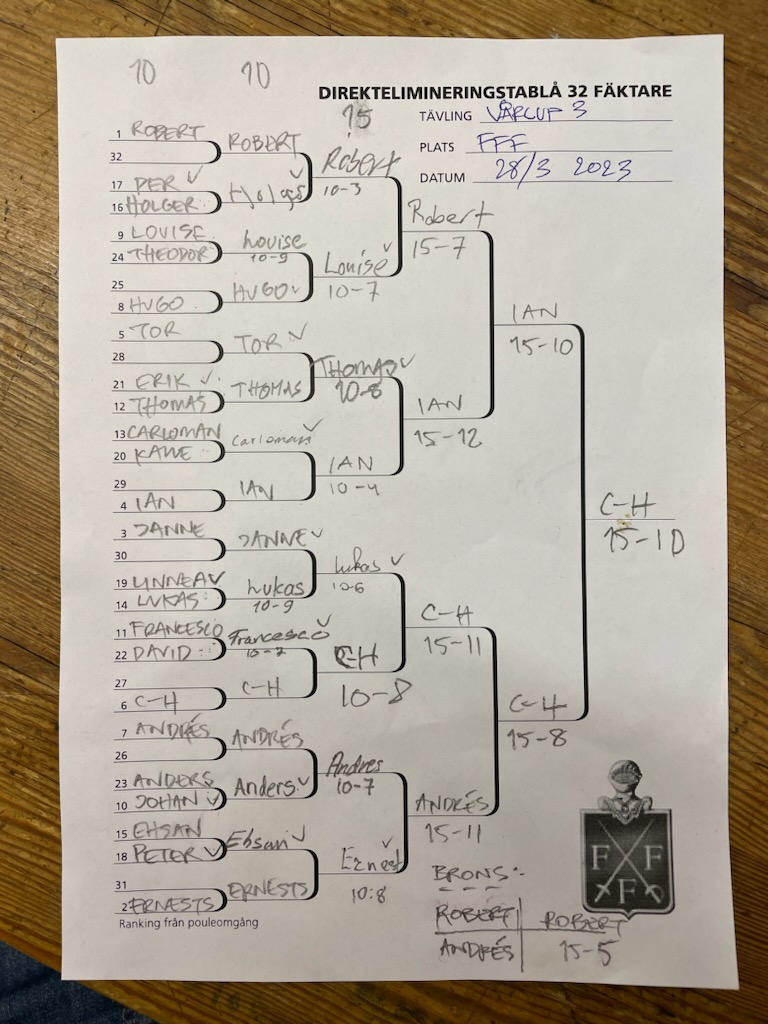 10 10
DIREKTELIMINERINGSTABLÅ 32 FÄKTARE
15
TÄVLING VÅRCUP 3
PLATS FFF
DATUM 28/3 2023
1 ROBERT
32
17 PER ✓
16 HOLGER
9 LOUISE
24 THEODOR
25
8 HUGO
5 TOR
28
21 ERIK ✓
12 THOMAS
13 CARLOMAN
20 KALLE
29
4 IAN
3 JANNE
30
19 LINNEA ✓
14 LUKAS
11 FRANCESCO
22 DAVID
27
6 C-H
7 ANDRÉS
26
23 ANDERS
10 JOHAN ✓
15 EHSAN
18 PETER ✓
31
2 ERNESTS
Ranking från pouleomgång
ROBERT
Holger ✓
Louise
10-9
HUGO ✓
TOR ✓
THOMAS
Carloman ✓
IAN
JANNE ✓
Lukas
10-9
Francesco ✓
10-2
C-H
ANDRÉS
Anders ✓
Ehsan ✓
ERNESTS
Robert
10-3
Louise ✓
10-7
THOMAS ✓
10-8
IAN
10-4
Lukas ✓
10-6
C-H
10-8
Andres
10-7
Ernest ✓
10:8
Robert
15-7
IAN
15-12
C-H
15-11
ANDRÉS
15-11
IAN
15-10
C-H
15-8
C-H
15-10
BRONS:-
ROBERT ROBERT
ANDRÉS 15-5
F F
F